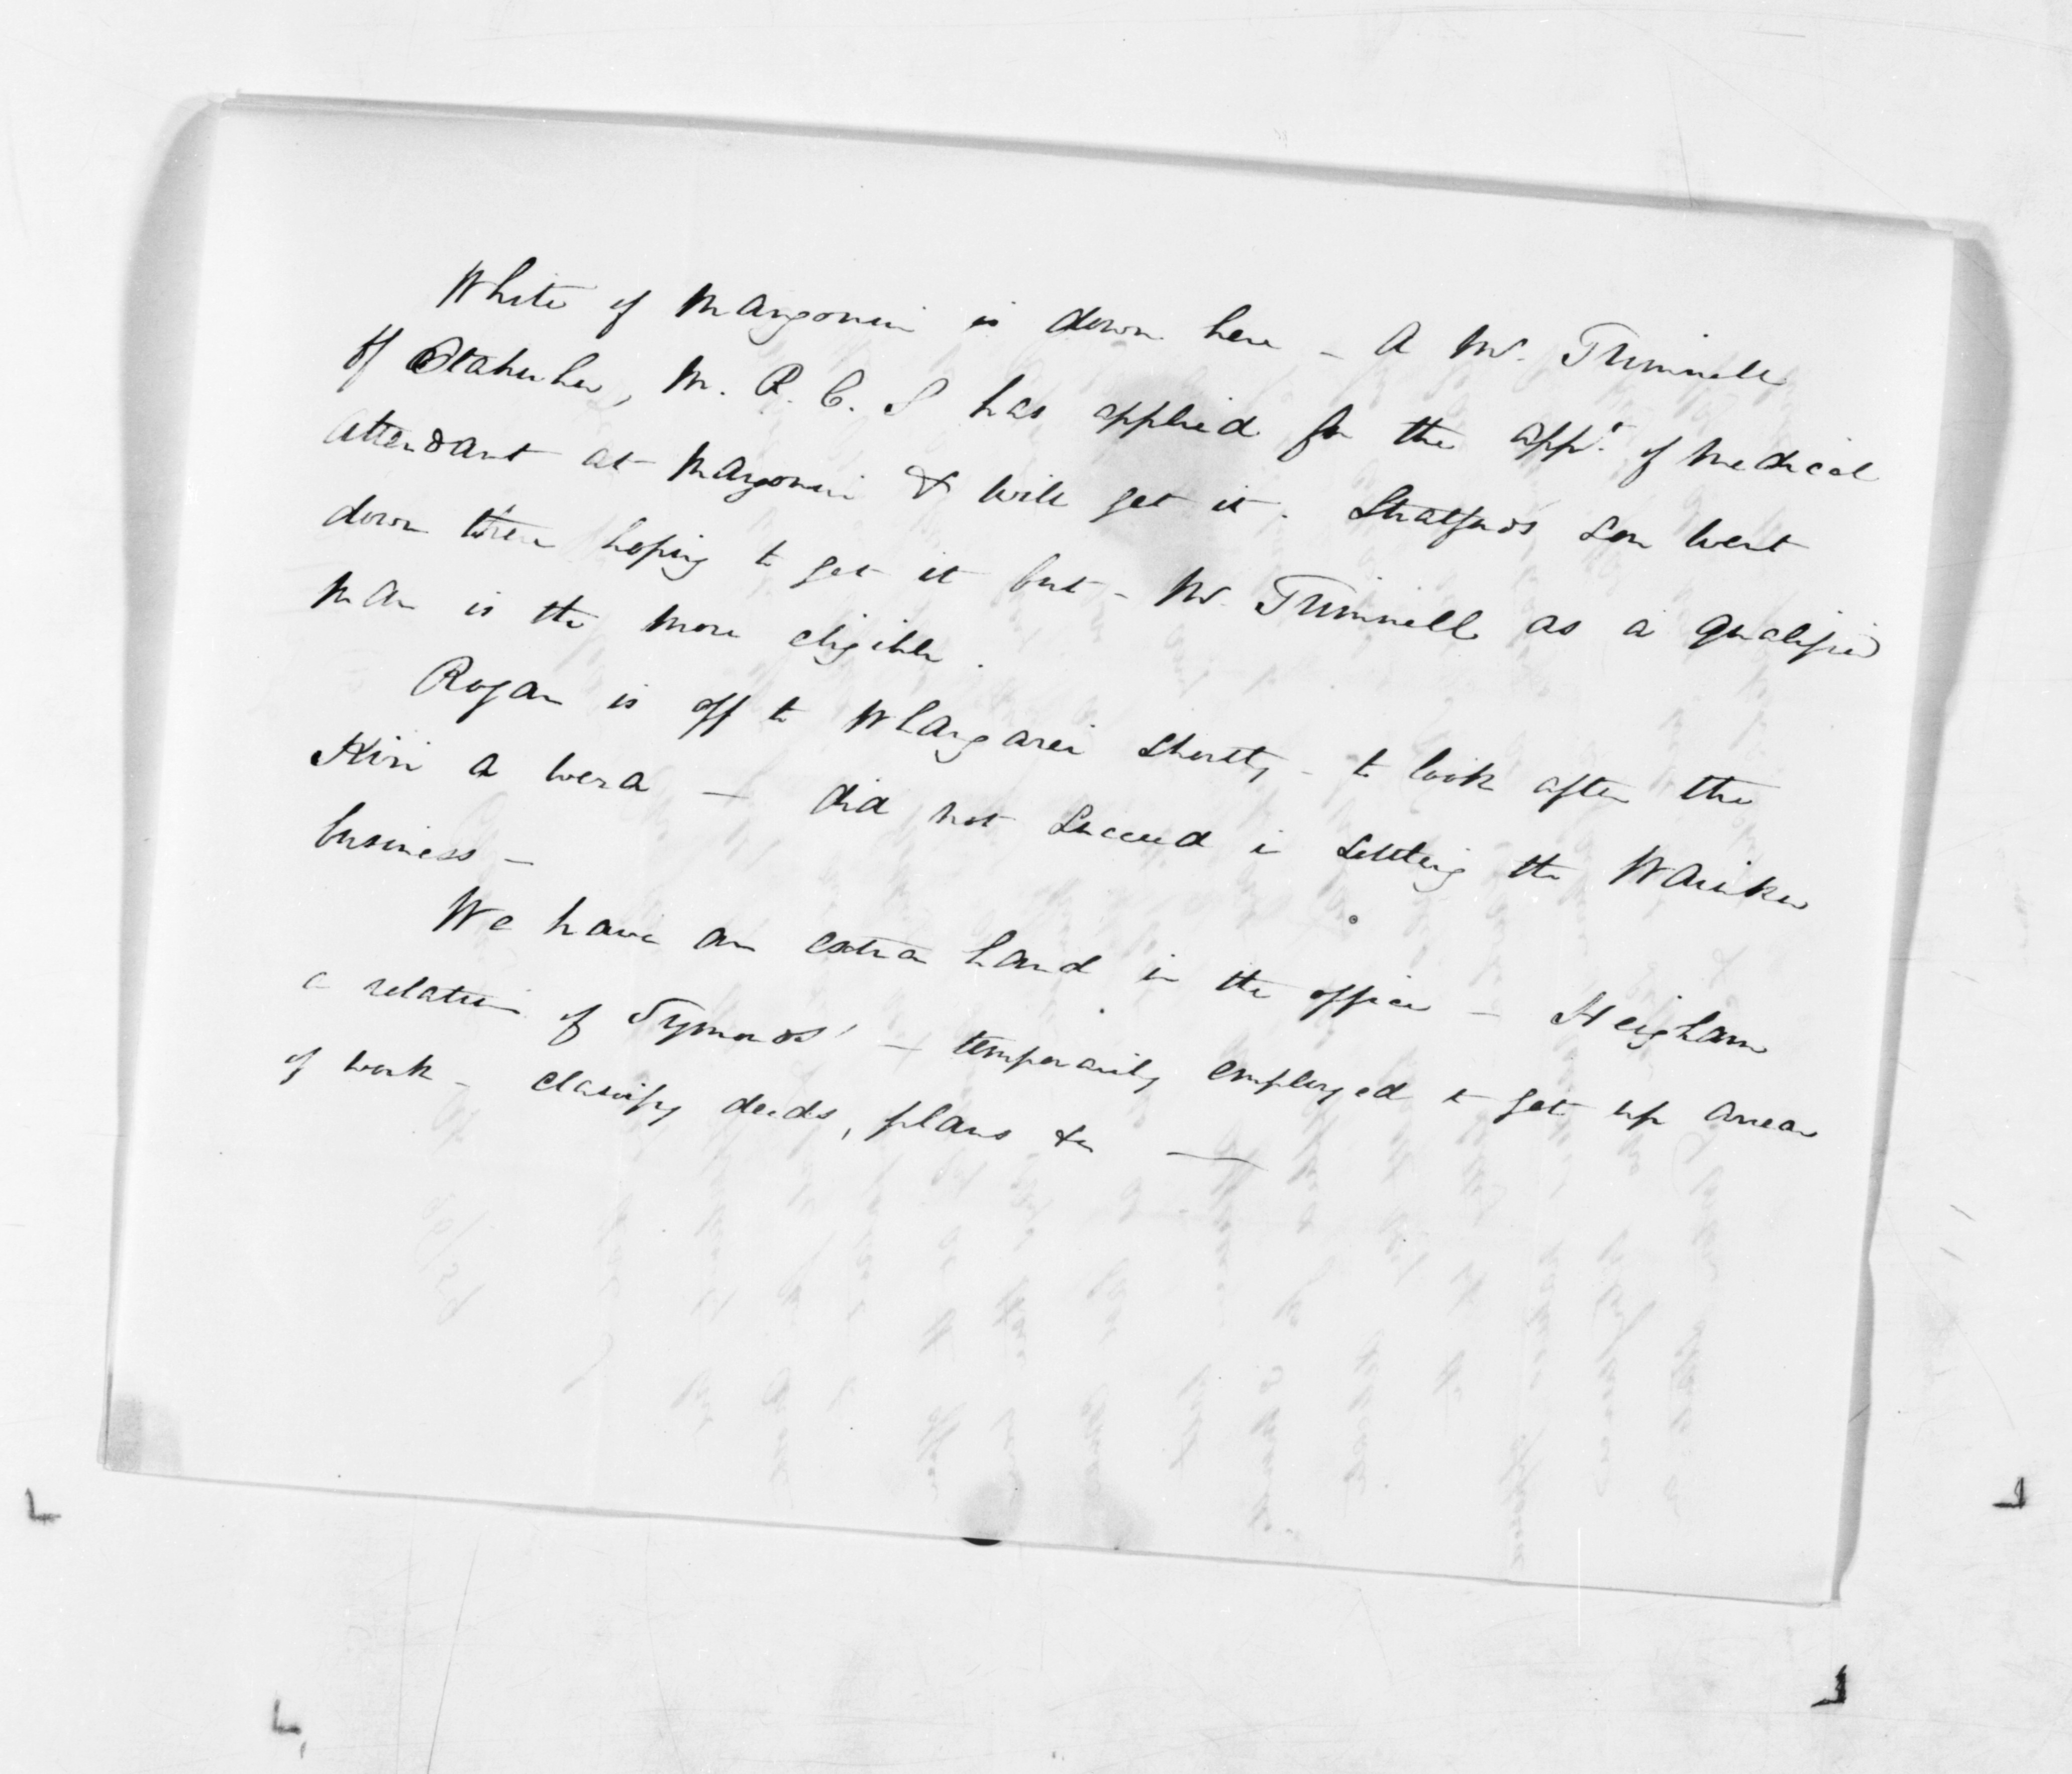 White of Mangonui is down here - A Mr. Trimnell
of Otahuhu, M. R. C. S has applied for the appt. of Medical
attendant at Mangonui & will get it. Stratfords son went
down there hoping to get it but - Mr. Trimnell as a qualified
man is the more eligible.
Rogan is off to Whangarei shortly - to look after the
Kiri a wera — did not succeed in settling the Waiuku
business —
We have an extra hand in the office — Heigham
a relation of Symonds' — temporarily employed to get up arrears
of work - classify deeds, plans &c —